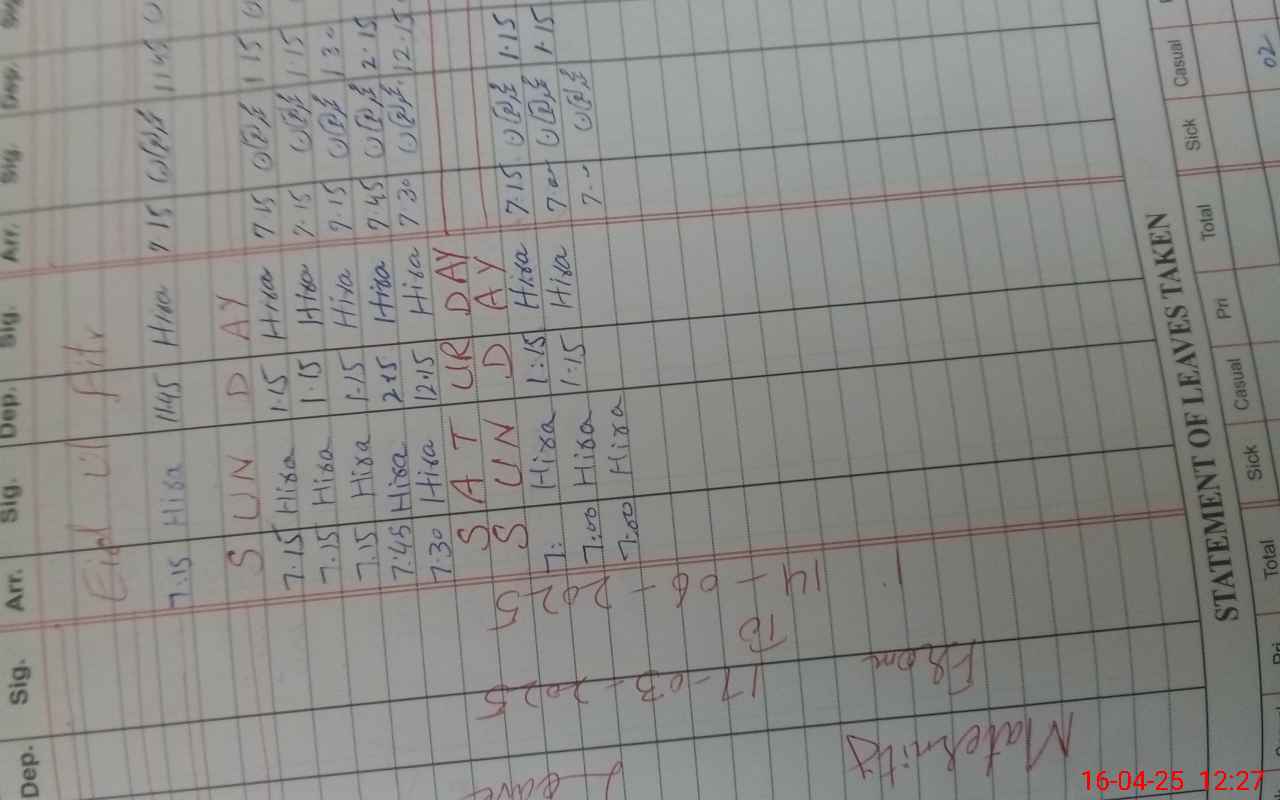 Dep. Sig. Arr. Sig. Dep. Sig. Arr. Sig. Dep.
Eid ul fitr
7.15 Hira 11:45 Hira 7 15 11 45
S UN D AY
7.15 Hira 1.15 Hira 7 15 1 15
7.15 Hira 1.15 Hira 7.15 1.15
7.15 Hira 1.15 Hira 7.15 1.30
7:45 Hira 2.15 Hira 7.45 2.15
7.30 Hira 12.15 Hira 7 30 12.15
S A T UR DAY
S UN D AY
7: Hira 1:15 Hira 7.15 1.15
7:00 Hira 1.15 Hira 7.00 1.15
7.00 Hira
Maternity
Leave
From
17-03-2025
To
14-06-2025
STATEMENT OF LEAVES TAKEN
Pri Total Sick Casual Pri Total Sick Casual
02
16-04-25 12:27